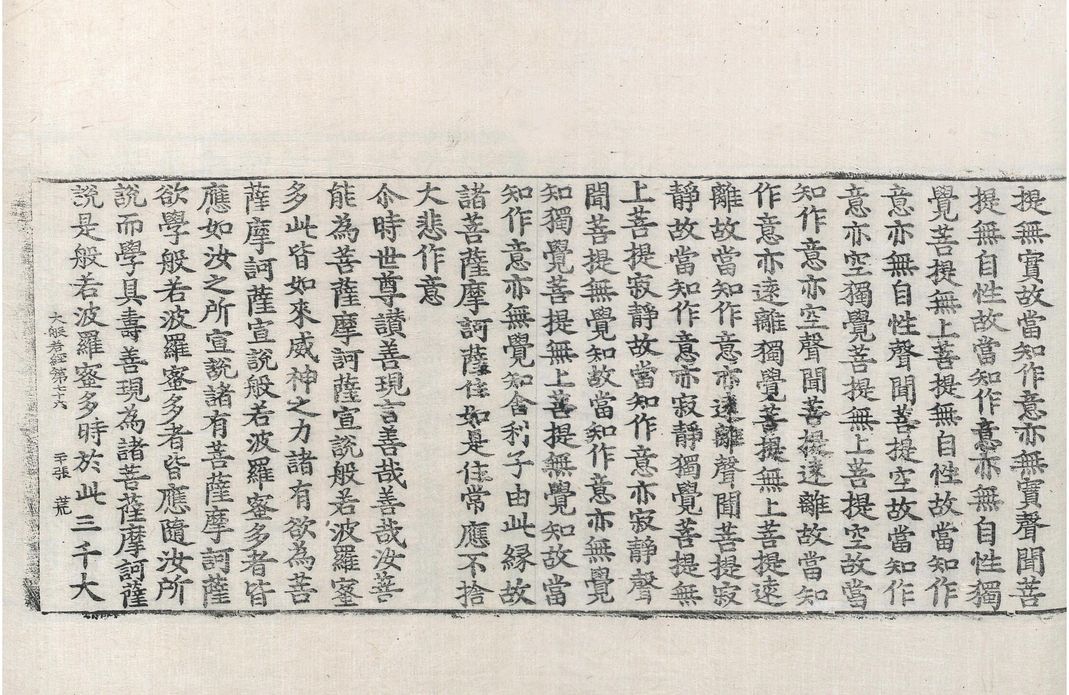 提無實故當知作意亦無實聲聞菩
提無自性故當知作意亦無自性獨
覺菩提無上菩提無自性故當知作
意亦無自性聲聞菩提空故當知作
意亦空獨覺菩提無上菩提空故當
知作意亦空聲聞菩提遠離故當知
作意亦遠離獨覺菩提無上菩提遠
離故當知作意亦遠離聲聞菩提寂
靜故當知作意亦寂靜獨覺菩提無
上菩提寂靜故當知作意亦寂靜聲
聞菩提無覺知故當知作意亦無覺
知獨覺菩提無上菩提無覺知故當
知作意亦無覺知舍利子由此縁故
諸菩薩摩訶薩住如是住常應不捨
大悲作意
尒時世尊讃善現言善哉善哉汝善
能為菩薩摩訶薩宣說般若波羅蜜
多此皆如來威神之力諸有欲為菩
薩摩訶薩宣說般若波羅蜜多者皆
應如汝之所宣說諸有菩薩摩訶薩
欲學般若波羅蜜多者皆應隨汝所
說而學具壽善現為諸菩薩摩訶薩
說是般若波羅蜜多時於此三千大
大般若經第七十六 張 荒